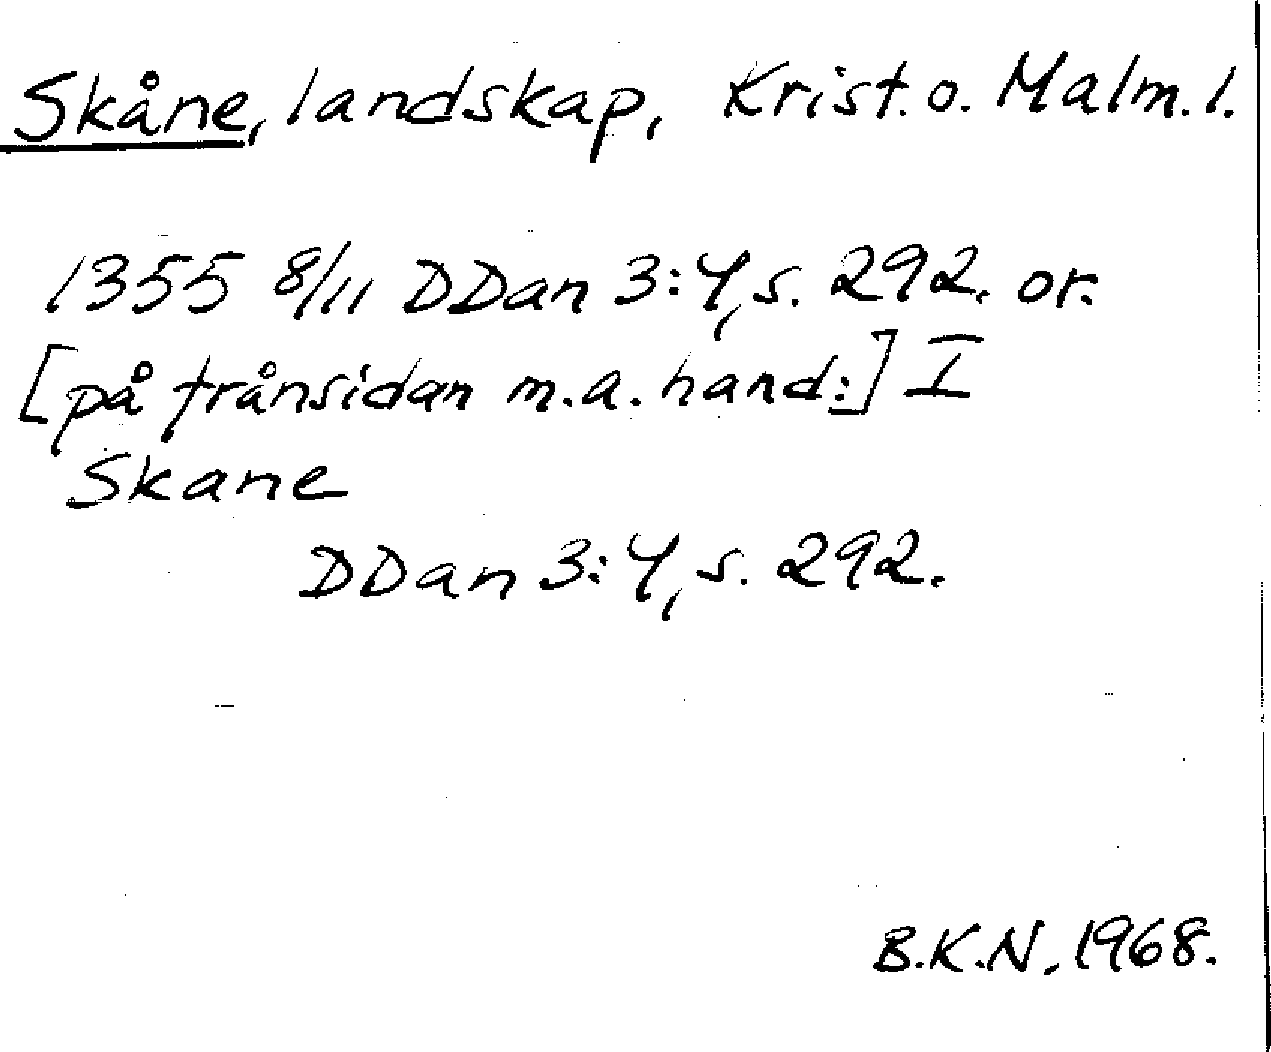 Skåne, landskap, Krist. o. Malm. l.
1355 8/11 DDan 3:4, s. 292. or.
[på frånsidan m.a. hand:] I
Skane
DDan 3:4, s. 292.
B.K.N. 1968.